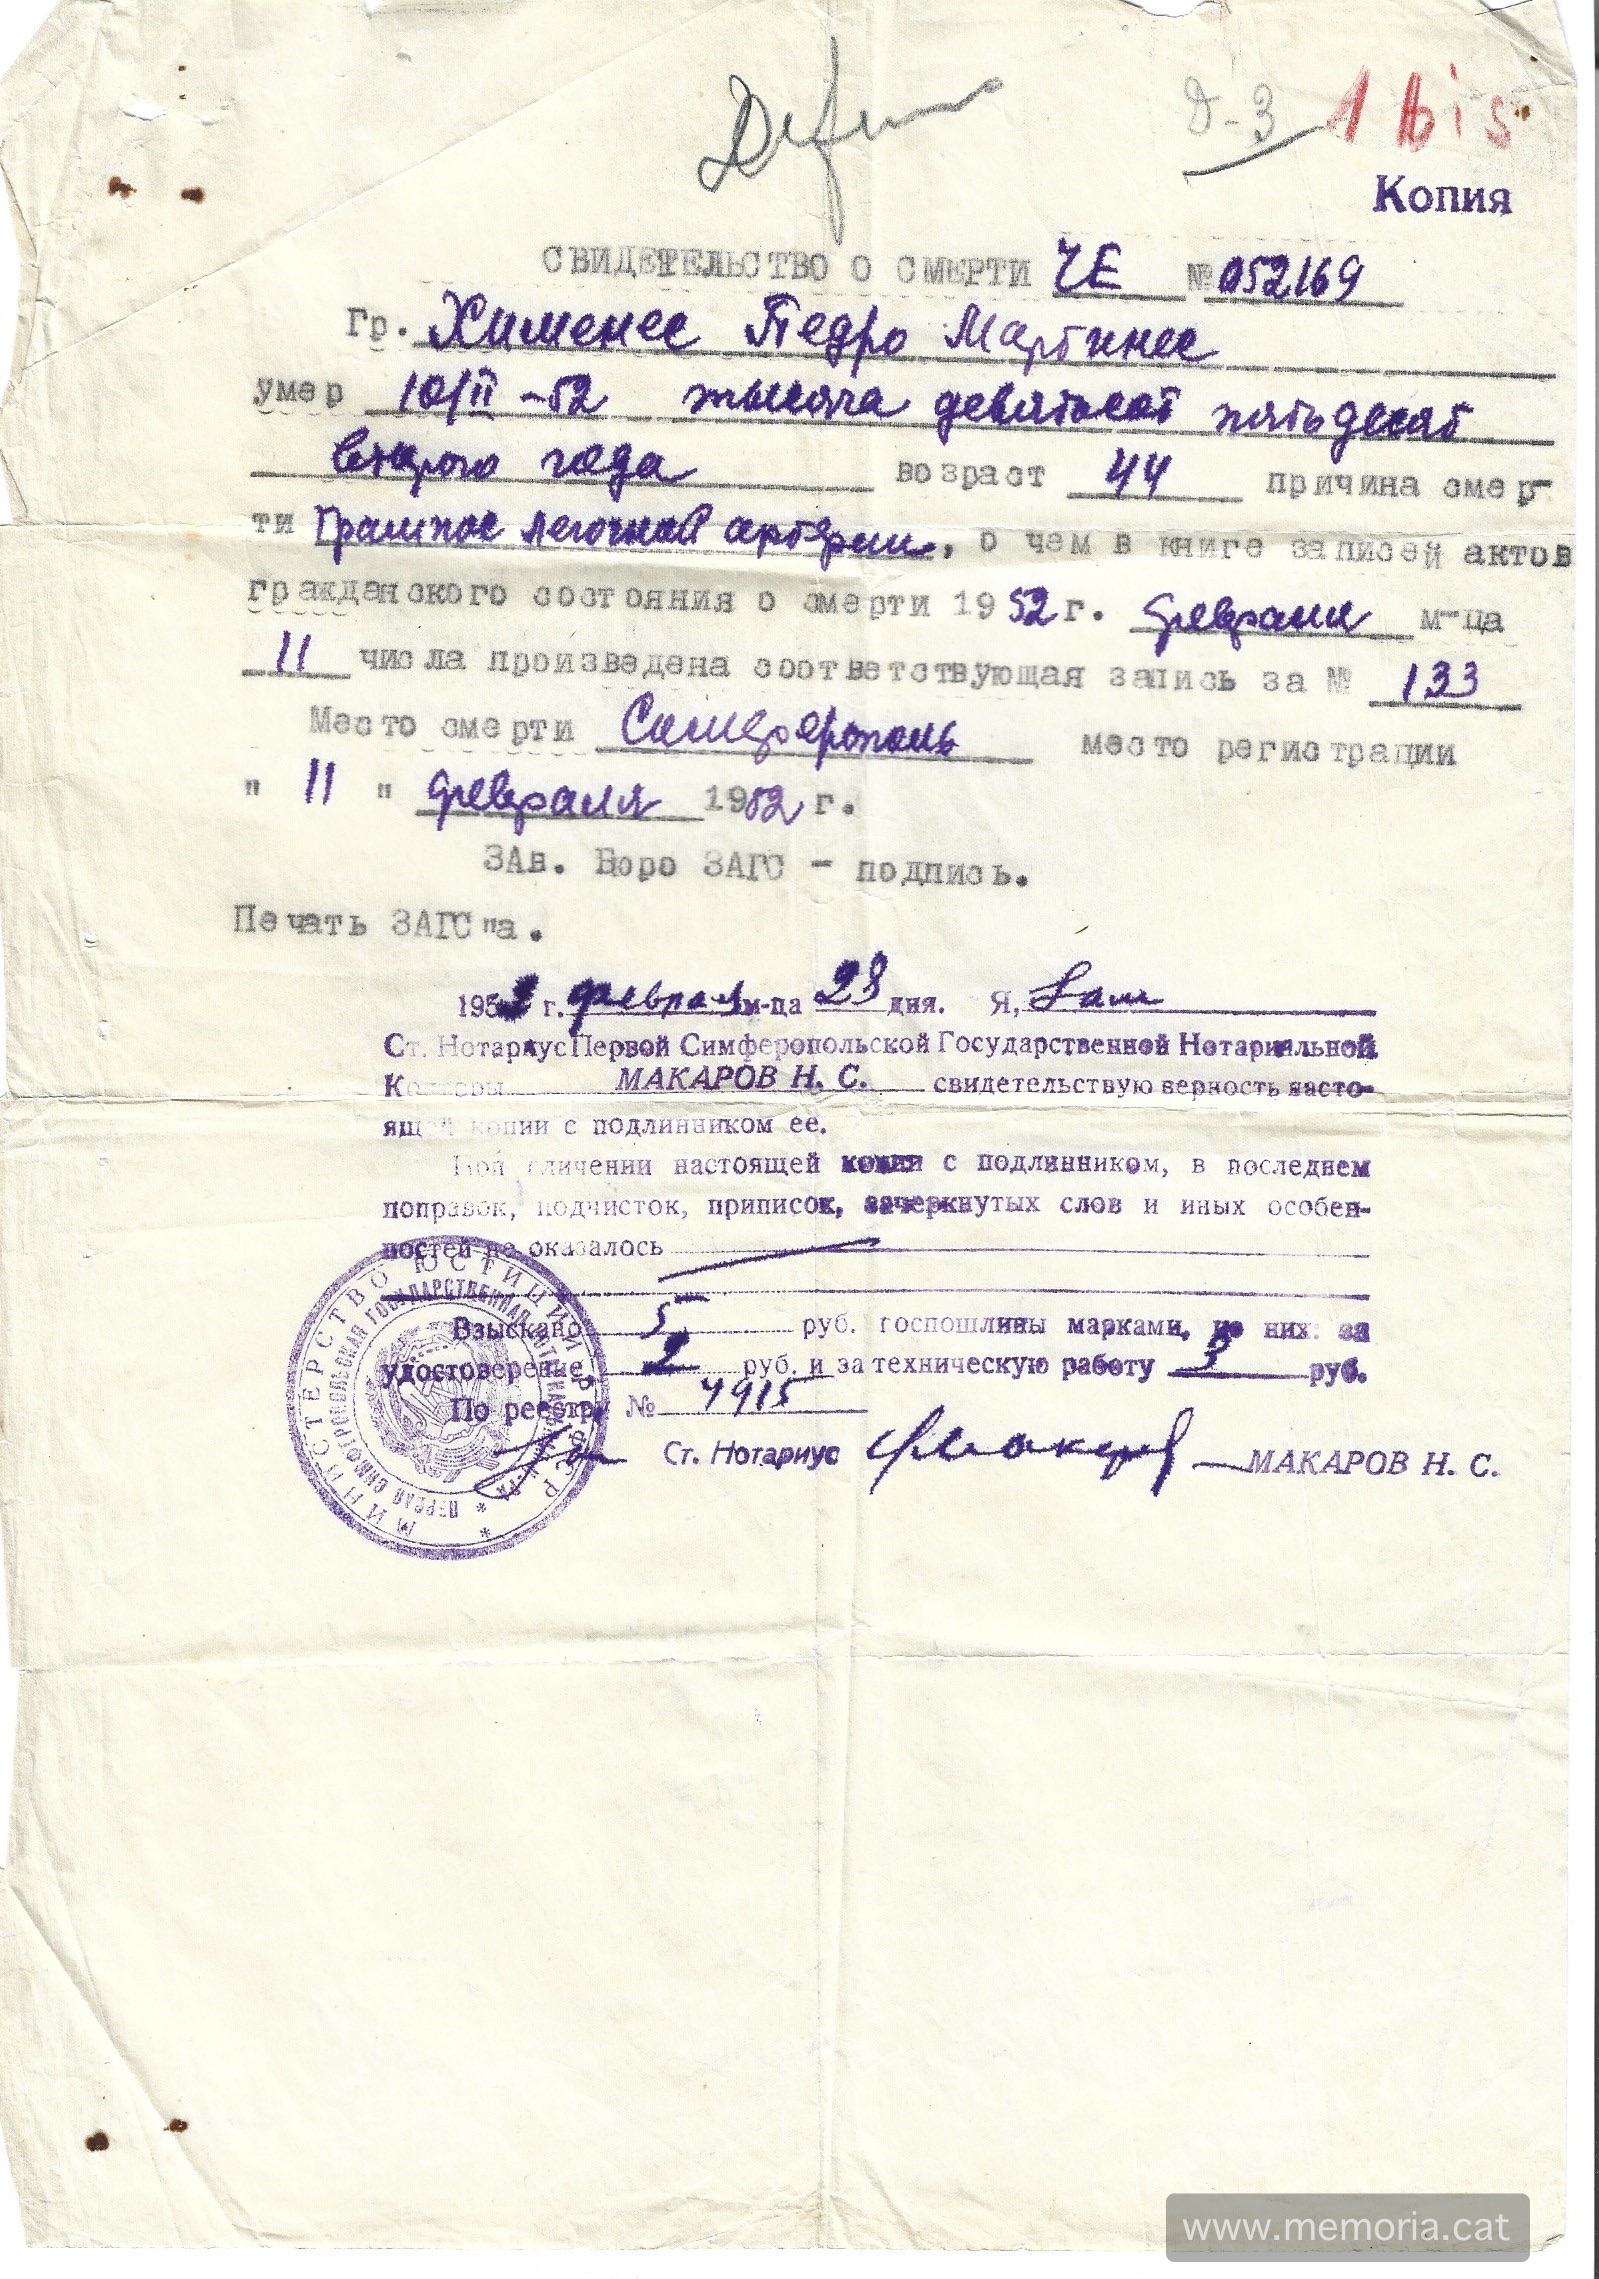 Д-3 1 bis
Копия
СВИДЕТЕЛЬСТВО О СМЕРТИ ЧЕ № 052169
Гр. Хименес Педро Мартинес
умер 10/II-52 тысяча девятьсот пятьдесят
второго года возраст 44 причина смер-
ти легочной артерии, о чем в книге записей актов
гражданского состояния о смерти 1952 г. февраля м-ца
11 числа произведена соответствующая запись за № 133
Место смерти Симферополь место регистрации
" 11 " февраля 1952 г.
ЗАв. Бюро ЗАГС - подпись.
Печать ЗАГС"а.
195 г. февраля м-ца 28 дня. Я,
Ст. Нотариус Первой Симферопольской Государственной Нотариальной
Конторы МАКАРОВ Н. С. свидетельствую верность насто-
ящей копии с подлинником ее.
При сличении настоящей копии с подлинником, в последнем
поправок, подчисток, приписок, зачеркнутых слов и иных особен-
ностей не оказалось
Взыскано 5 руб. госпошлины марками, из них: за
удостоверение 2 руб. и за техническую работу 3 руб.
По реестру № 4915
Ст. Нотариус МАКАРОВ Н. С.
МИНИСТЕРСТВО ЮСТИЦИИ РСФСР
ПЕРВАЯ СИМФЕРОПОЛЬСКАЯ ГОСУДАРСТВЕННАЯ НОТАРИАЛЬНАЯ КОНТОРА
www.memoria.cat